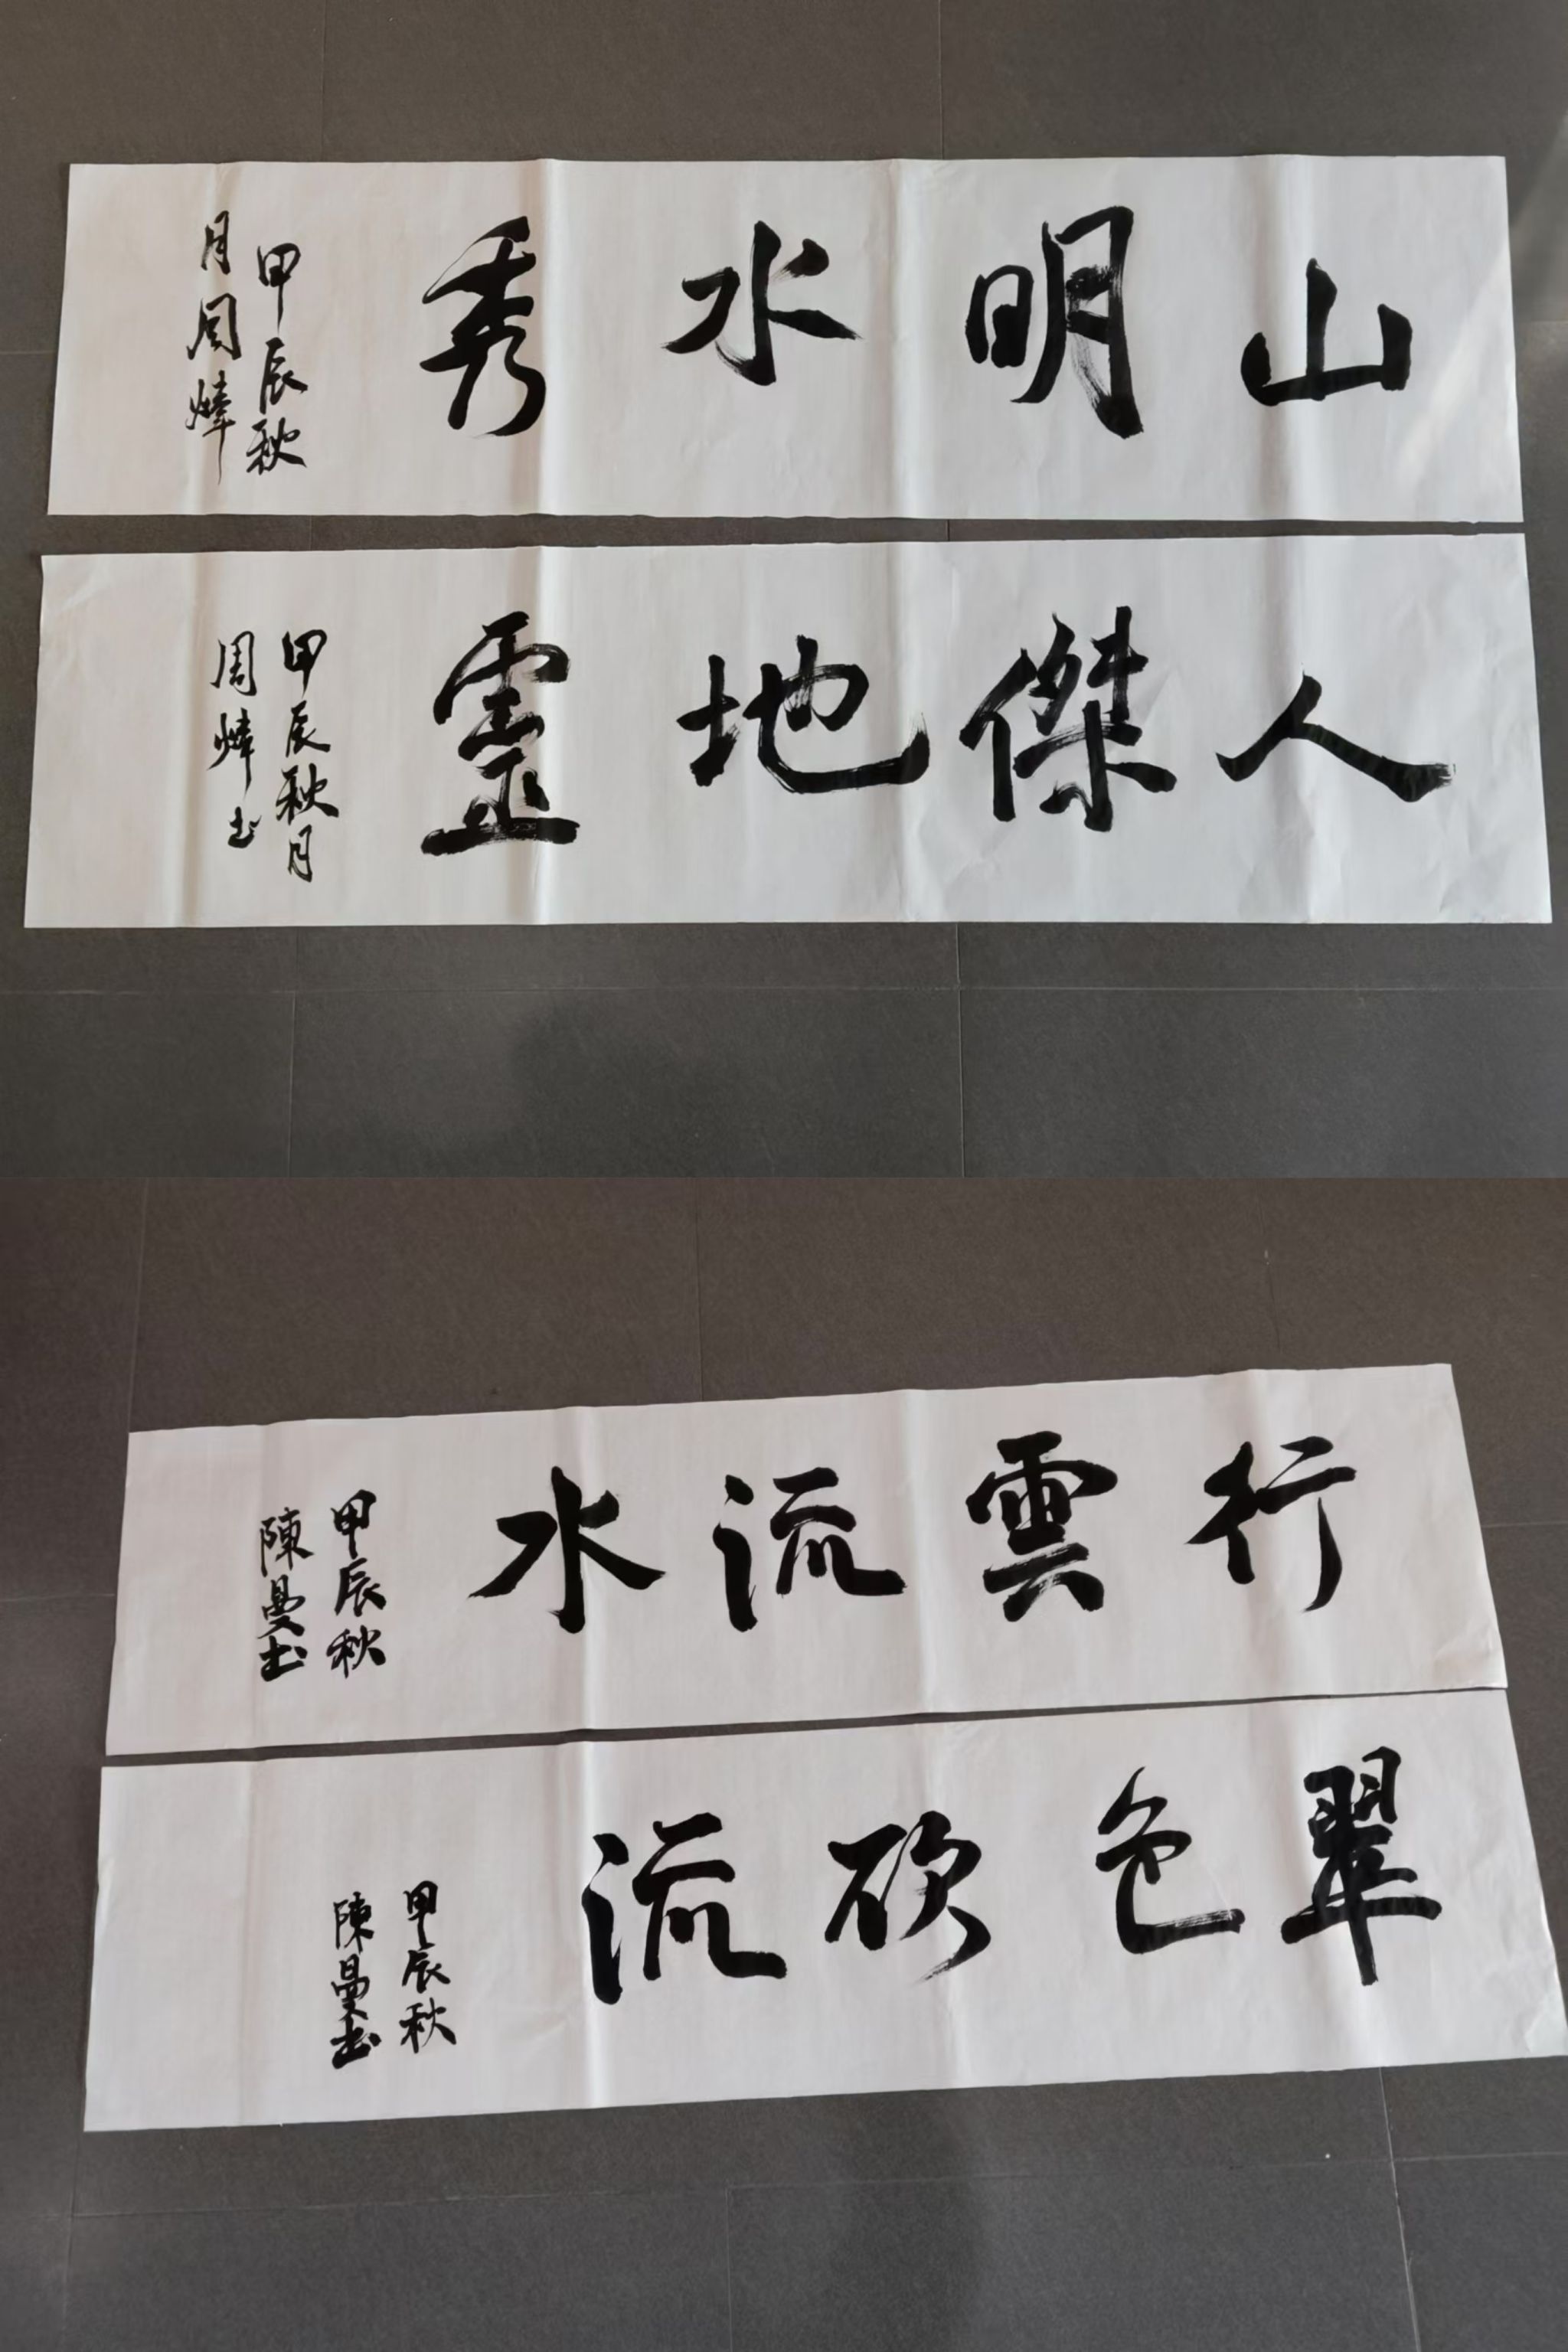 山明水秀
甲辰秋
月周煒
人傑地靈
甲辰秋月
周煒书
行雲流水
甲辰秋
陳曼书
翠色欲流
甲辰秋
陳曼书